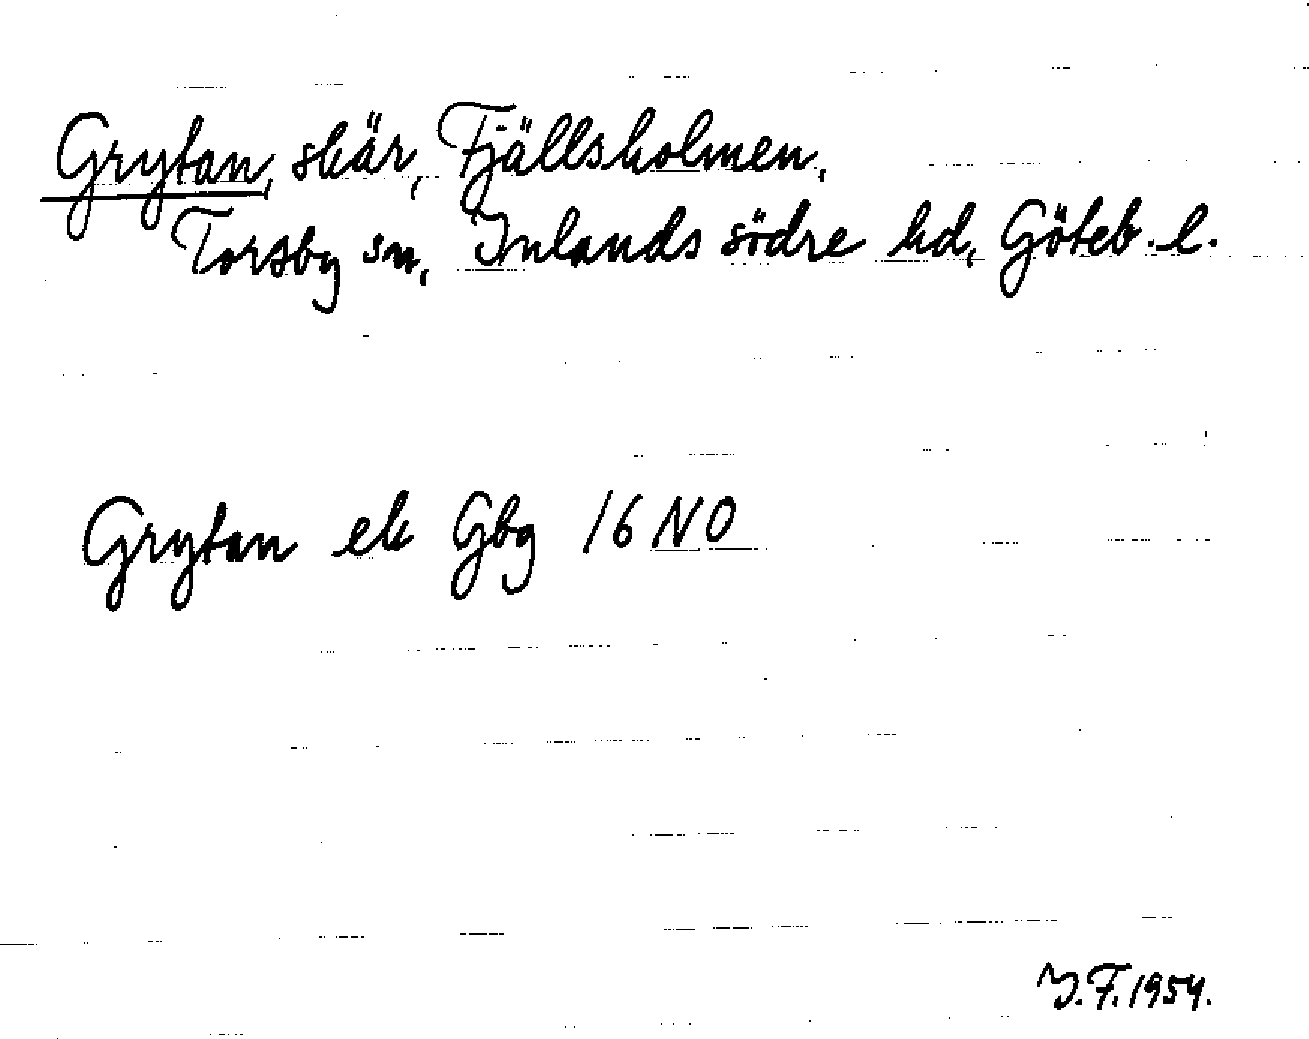 Grytan, skär, Fjällsholmen,
Torsby sn, Inlands södre hd, Göteb. l.
Grytan ek Gbg 16 NO
J.F. 1954.